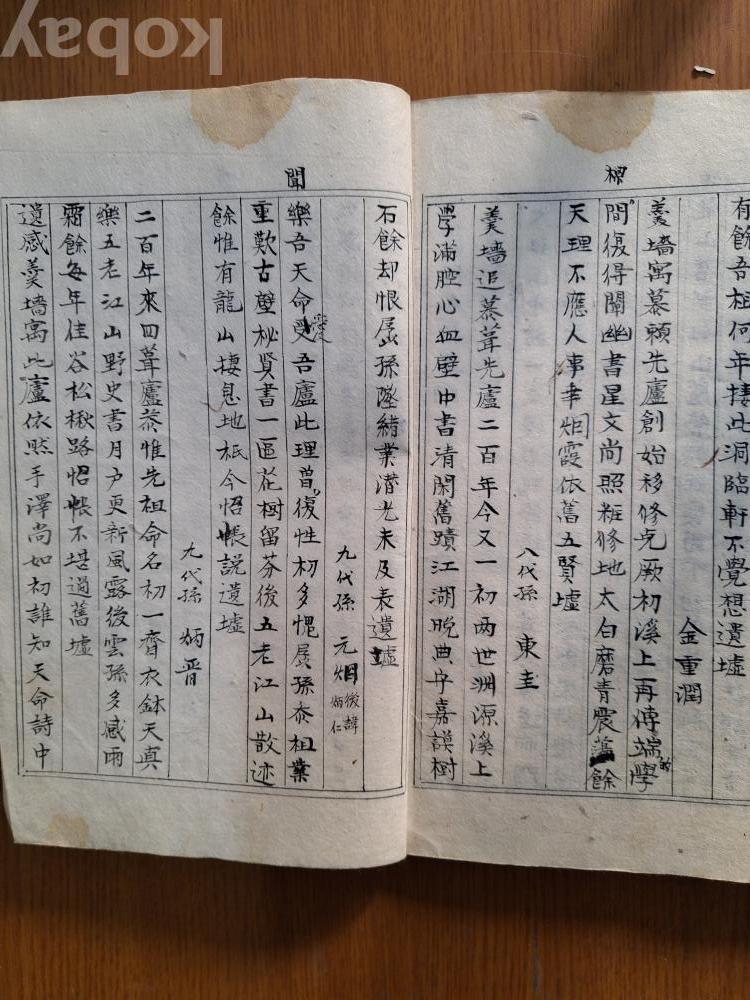 Kobay
標
有餘吾祖何年棲此洞臨軒不覺想遺墟
金重潤
羹墻寓慕賴先廬創始移修克厥初溪上再傳端的學
間復得闡幽書星文尚照粧修地太白磨青震蕩餘
天理不應人事幸烟霞依舊五賢墟
八代孫 東圭
羹墻追慕葺先廬二百年今又一初兩世淵源溪上
學滿腔心血壁中書清閑舊蹟江湖晩典守嘉謨樹
聞
石餘却恨孱孫墜緖業潛光未及表遺墟
九代孫 元烟 後諱炳仁
樂吾天命愛吾廬此理曾復性初多愧孱孫忝祖業
重歎古壁秘賢書一區花樹留芬後五老江山散迹
餘惟有龍山棲息地秪今怊悵說遺墟
九代孫 炳晋
二百年來四葺廬恭惟先祖命名初一齋衣鉢天真
樂五老江山野史書月戶更新風露後雲孫多感雨
霜餘每年佳谷松楸路怊悵不堪過舊墟
遺感羹墻寓此廬依然手澤尚如初誰知天命詩中